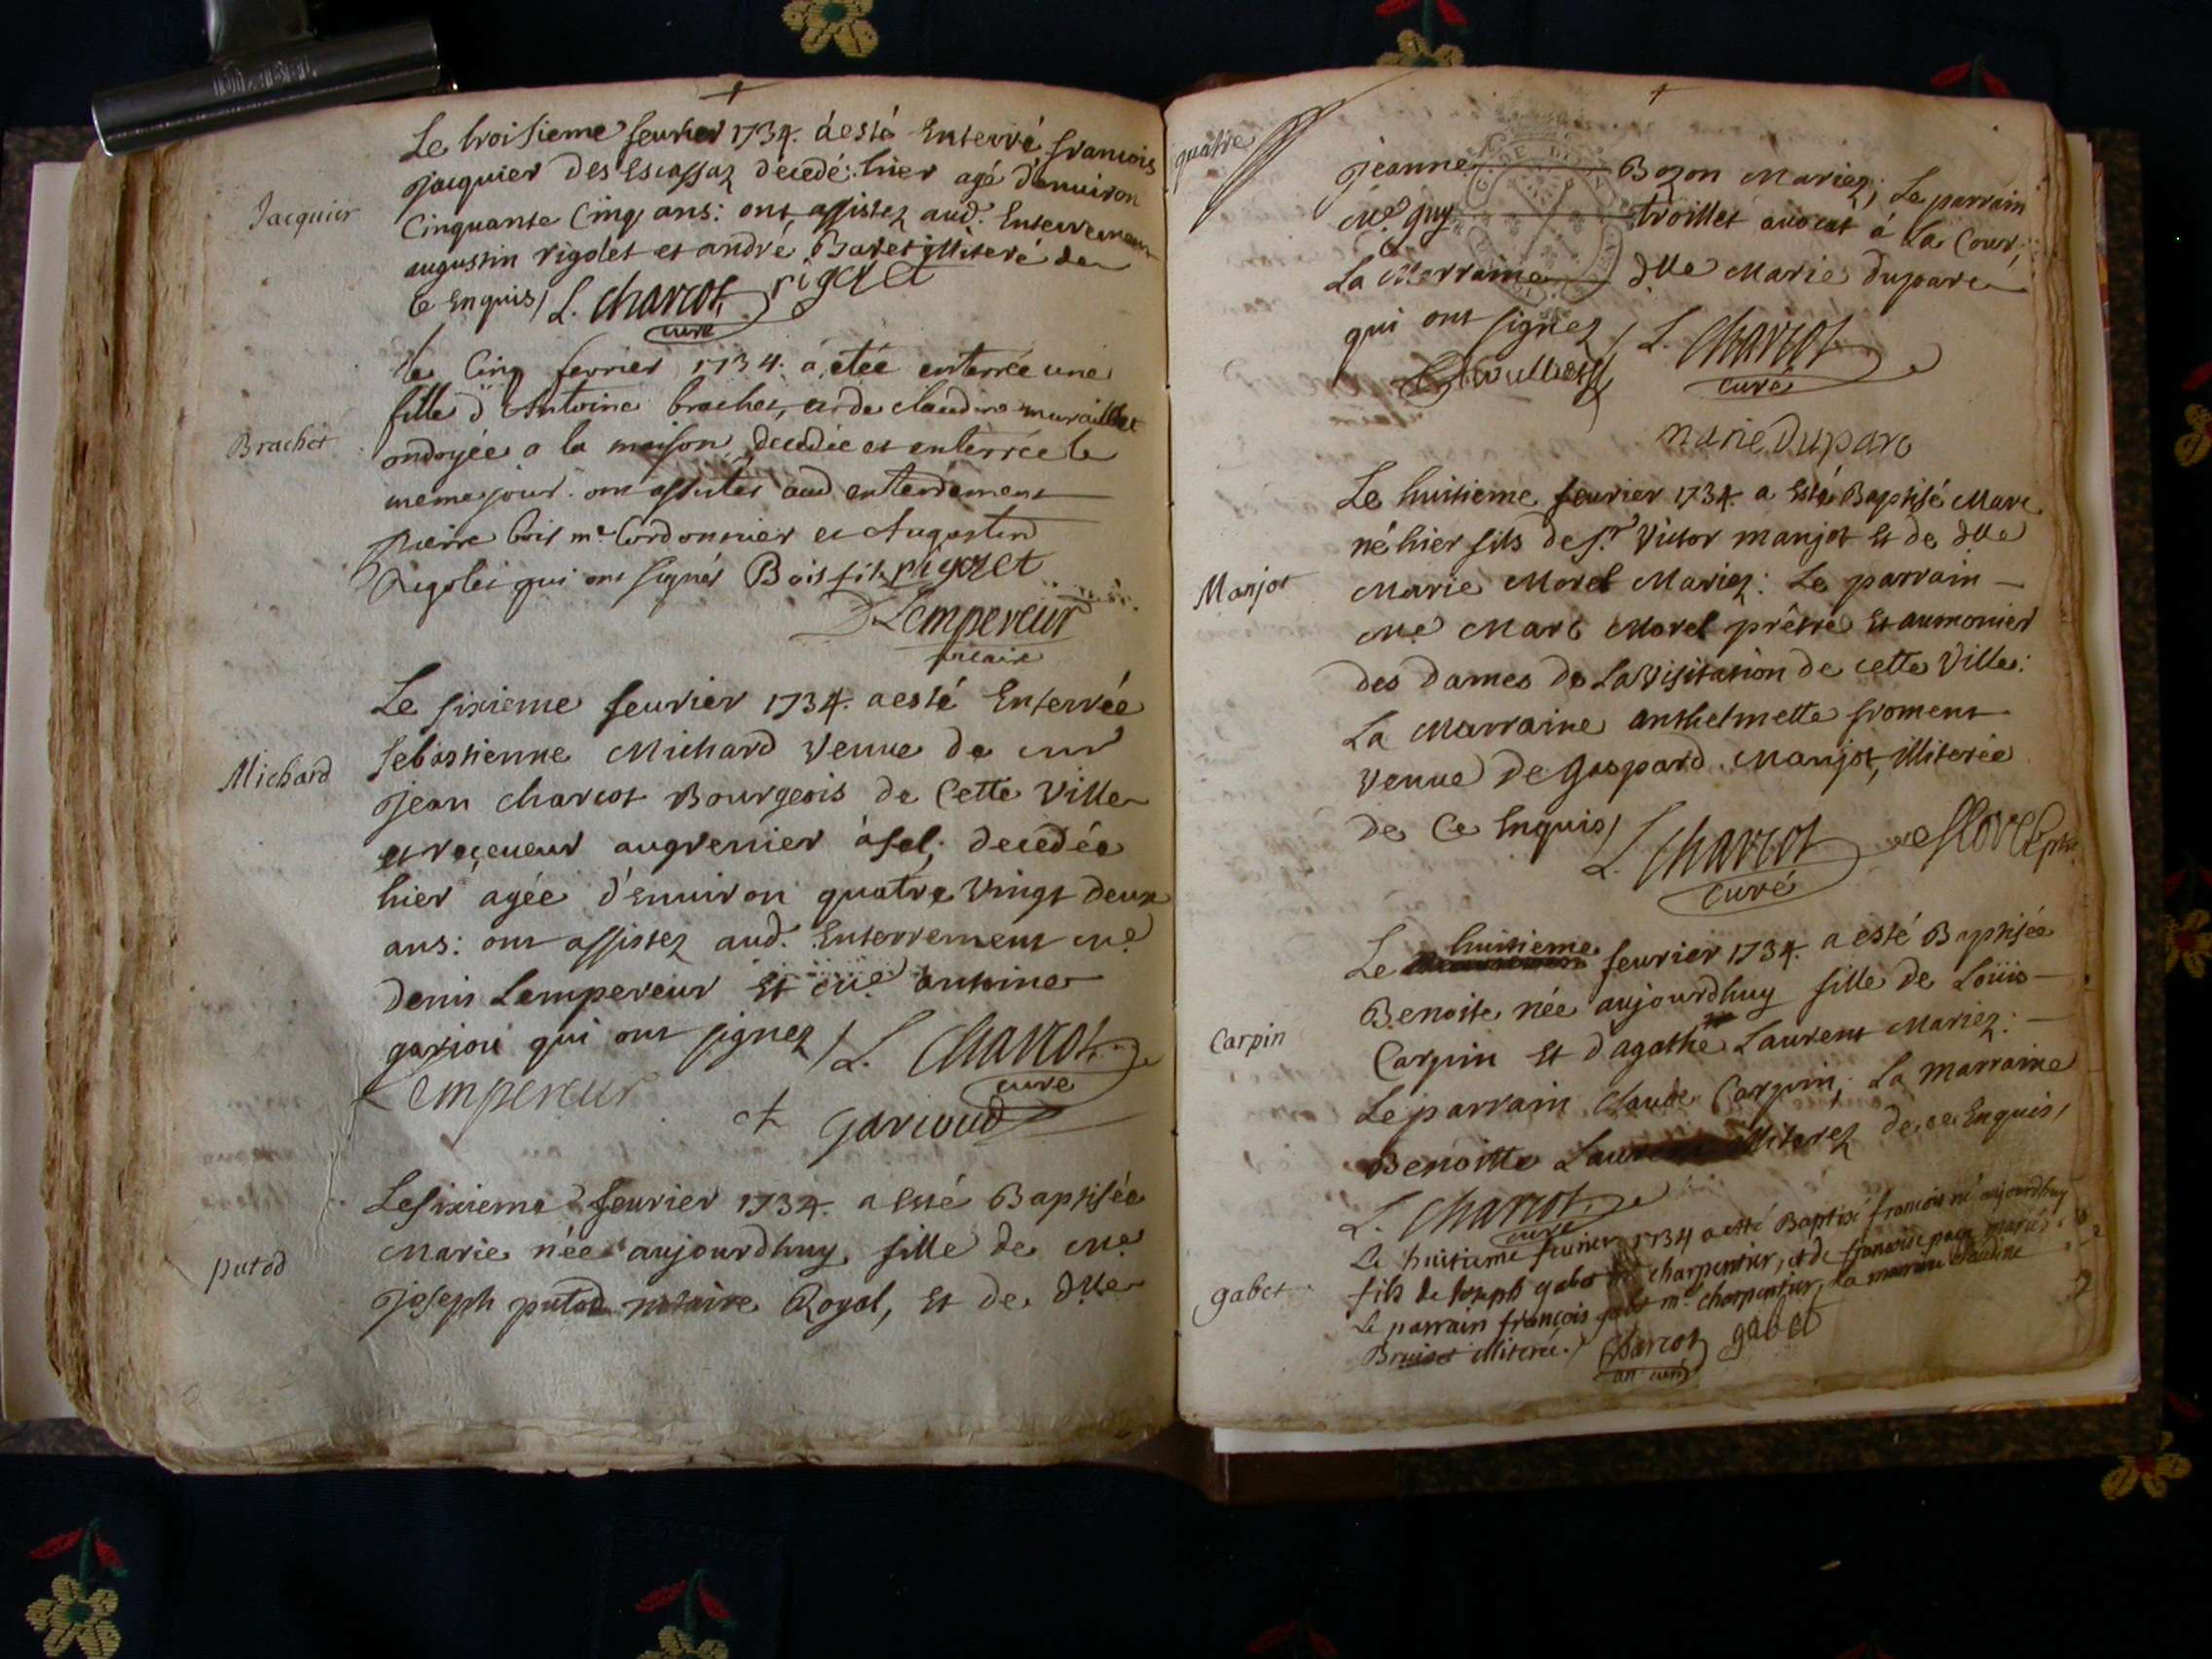 Le troisieme feurier 1734. a esté Enterré francois
Jacquier
Jacquier des Escassaz décedé hier agé d'enuiron
Cinquante Cinq ans: ont assistez aud. Enterrement
augustin rigolet et andré Baret illiteré de
ce Enquis / L. Charcot rigolet
curé
le Cinq fevrier 1734. a étée enterrée une
fille d'Antoine brachet, et de claudine muraillet
Brachet
ondoyée a la maison, decedée et enterrée le
meme jour. ont assistés aud enterrement
pierre bois me Cordonnier et Augustin
Rigolet qui ont signés Bois fils rigolet
D Lempereur
vicaire
Le sixieme feurier 1734. a esté Enterrée
Sebastienne Michard Veuue de mr
Michard
Jean Charcot Bourgeois de Cette Ville
et reçeueur au grenier à sel; decedée
hier agée d'Enuiron quatre Vingt deux
ans: ont assistez aud. Enterrement me
denis Lempereur Et me antoine
gariou qui ont signez / L. Charcot
curé
Lempereur
+ garioud
Le sixieme feurier 1734. a esté Baptisée
Marie née aujourdhuy, fille de Me
putod
Joseph putod notaire Royal, Et de dlle
quatre
Jeanne Bozon Mariez; Le parrain
Me. guy troillet auocat à la Cour,
La Marraine dlle Marie duparc
qui ont signez / L. Charcot
curé
marie Duparc
Le huitieme feurier 1734. a Esté Baptisé Marc
né hier fils de sr. Victor manjot Et de dlle
Manjot
Marie Morel Mariez: Le parrain
Me Marc Morel prêtre Et aumonier
des dames de La Visitation de cette Ville:
La Marraine anthelmette froment
Veuue de gaspard Manjot, illiterée
de Ce Enquis /
L. Charcot Morel ptre.
curé
huitieme
Le feurier 1734. a esté Baptisée
Benoite née aujourdhuy fille de Loüis
Carpin
Carpin Et d'agathe Laurent Mariez:
Le parrain Claude Carpin; La marraine
Benoitte Laurent illiterez de ce Enquis /
L. Charcot
curé
Le huitieme fevrier 1734 a esté Baptisé francois né aujourdhuy
gabet
fils de Joseph gabet me charpentier, et de francoise mariés.
Le parrain françois gabet me. charpentier, la marrine claudine
illiterée. / Charcot gabet
an curé